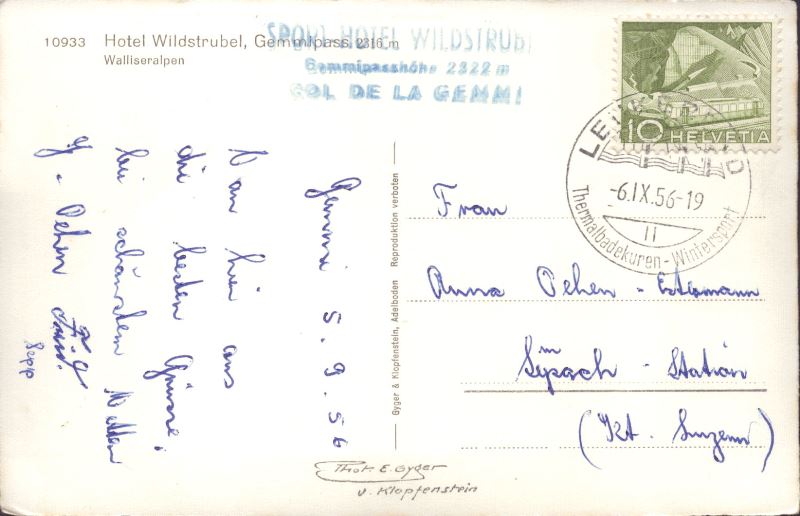 10933 Hotel Wildstrubel, Gemmipass, 2316 m
Walliseralpen
SPORT HOTEL WILDSTRUBEL
Gemmipasshöhe 2322 m
COL DE LA GEMMI
10 HELVETIA
LEUKERBAD
-6.IX.56-19
II
Thermalbadekuren-Wintersport
Gemmi 5.9.56
Von hier aus
die besten Grüsse,
bei schönstem Wetter
Oehen
Sepp
Reproduktion verboten
Gyger & Klopfenstein, Adelboden
Frau
Anna Oehen - Estermann
Station
(Kt. Luzern)
Phot. E. Gyger
v. Klopfenstein